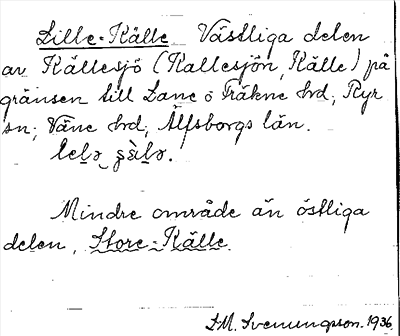 Lille-Källe Västliga delen
av Källesjö (Kallesjön, Källe) på
gränsen till Lane o Tråkne hd, Ryr
sn; Väne hd, Älfsborgs län.
Mindre område än östliga
delen, Store-Källe.
S.M. Svenungsson. 1936